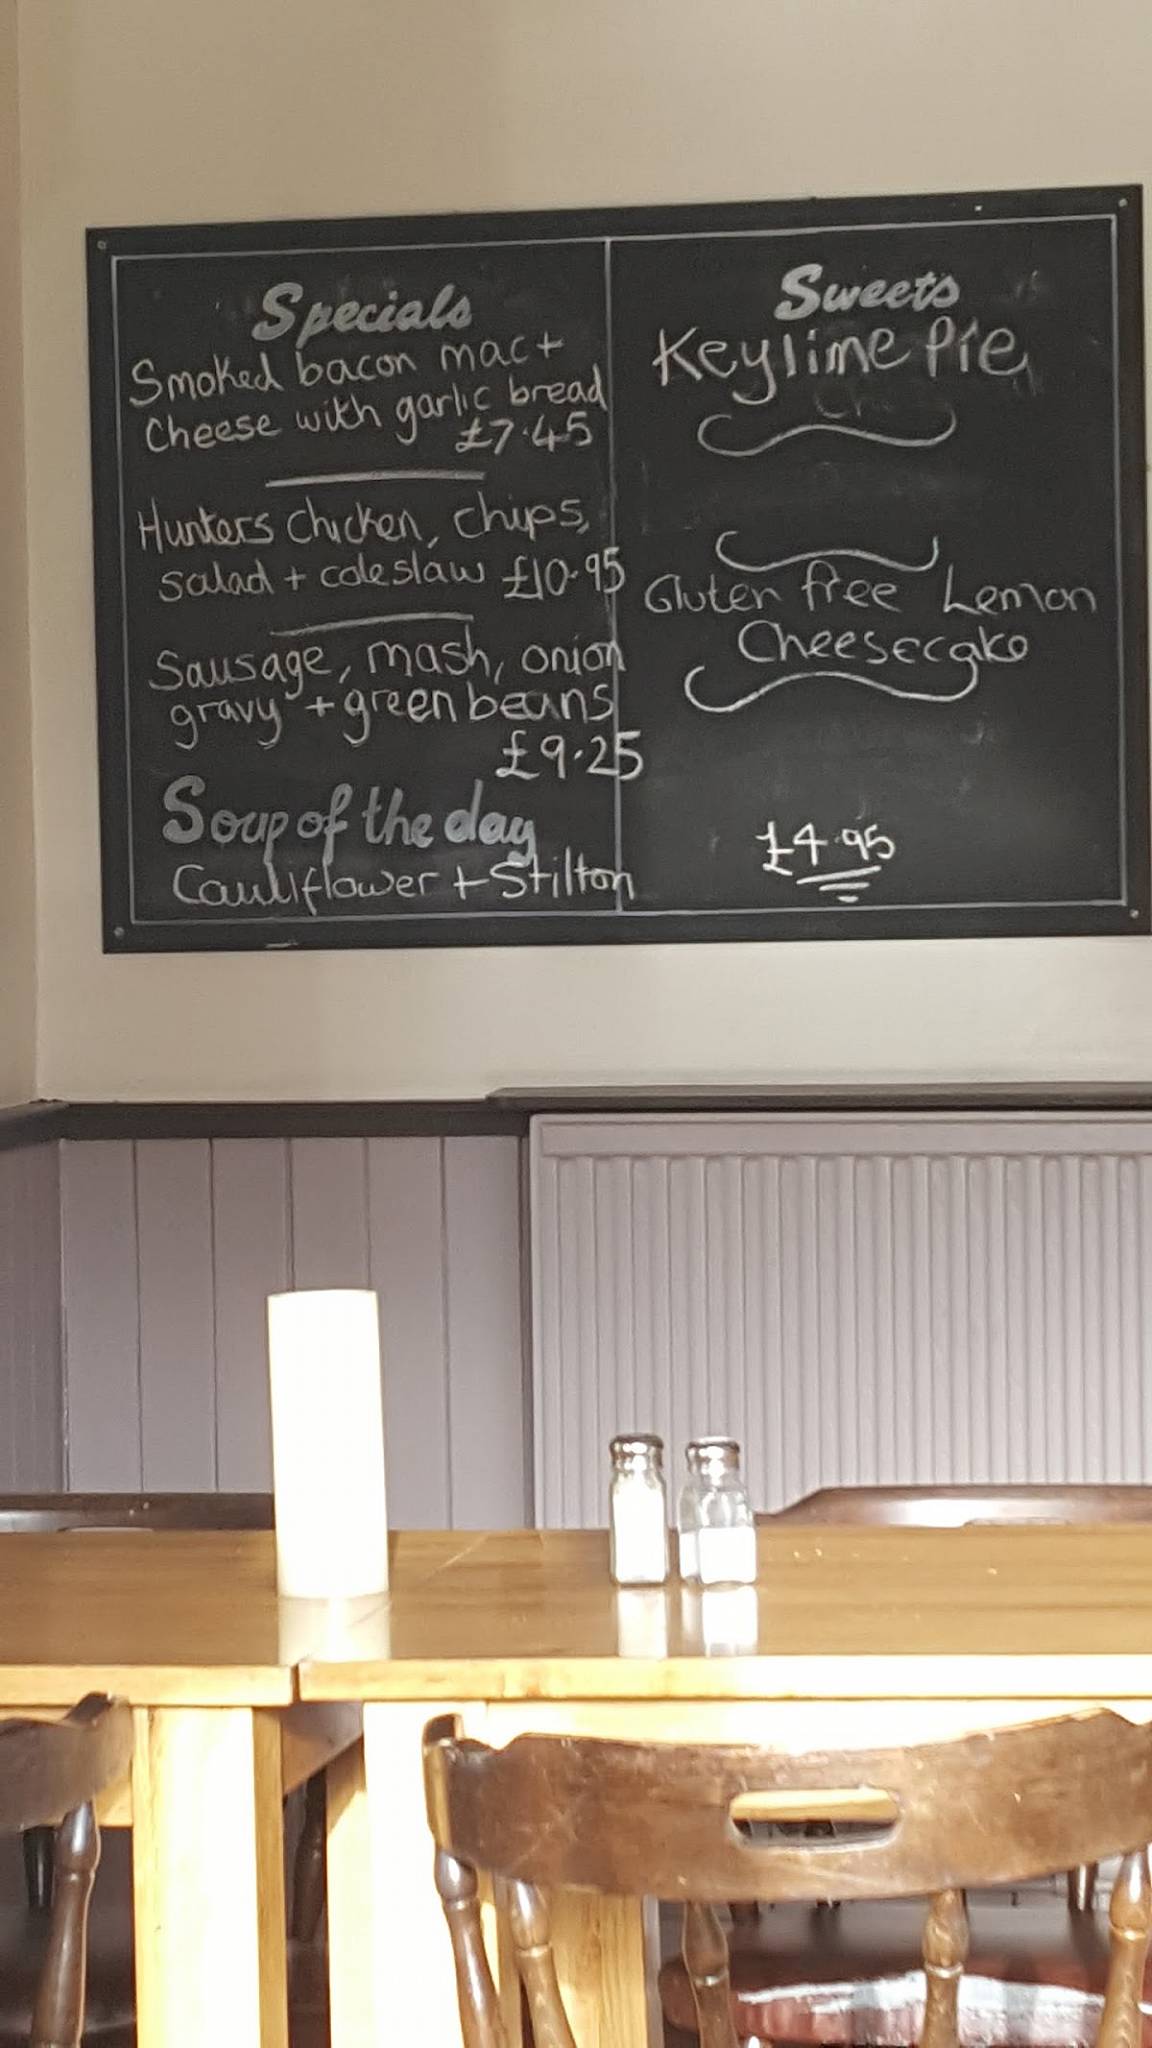 Specials
Smoked bacon mac +
Cheese with garlic bread
£7.45
Hunters Chicken, Chips,
Salad + coleslaw £10.95
Sausage, mash, onion
gravy + green beans
£9.25
Soup of the day
Cauliflower + Stilton
Sweets
Keylime Pie
Gluten free Lemon
Cheesecake
£4.95